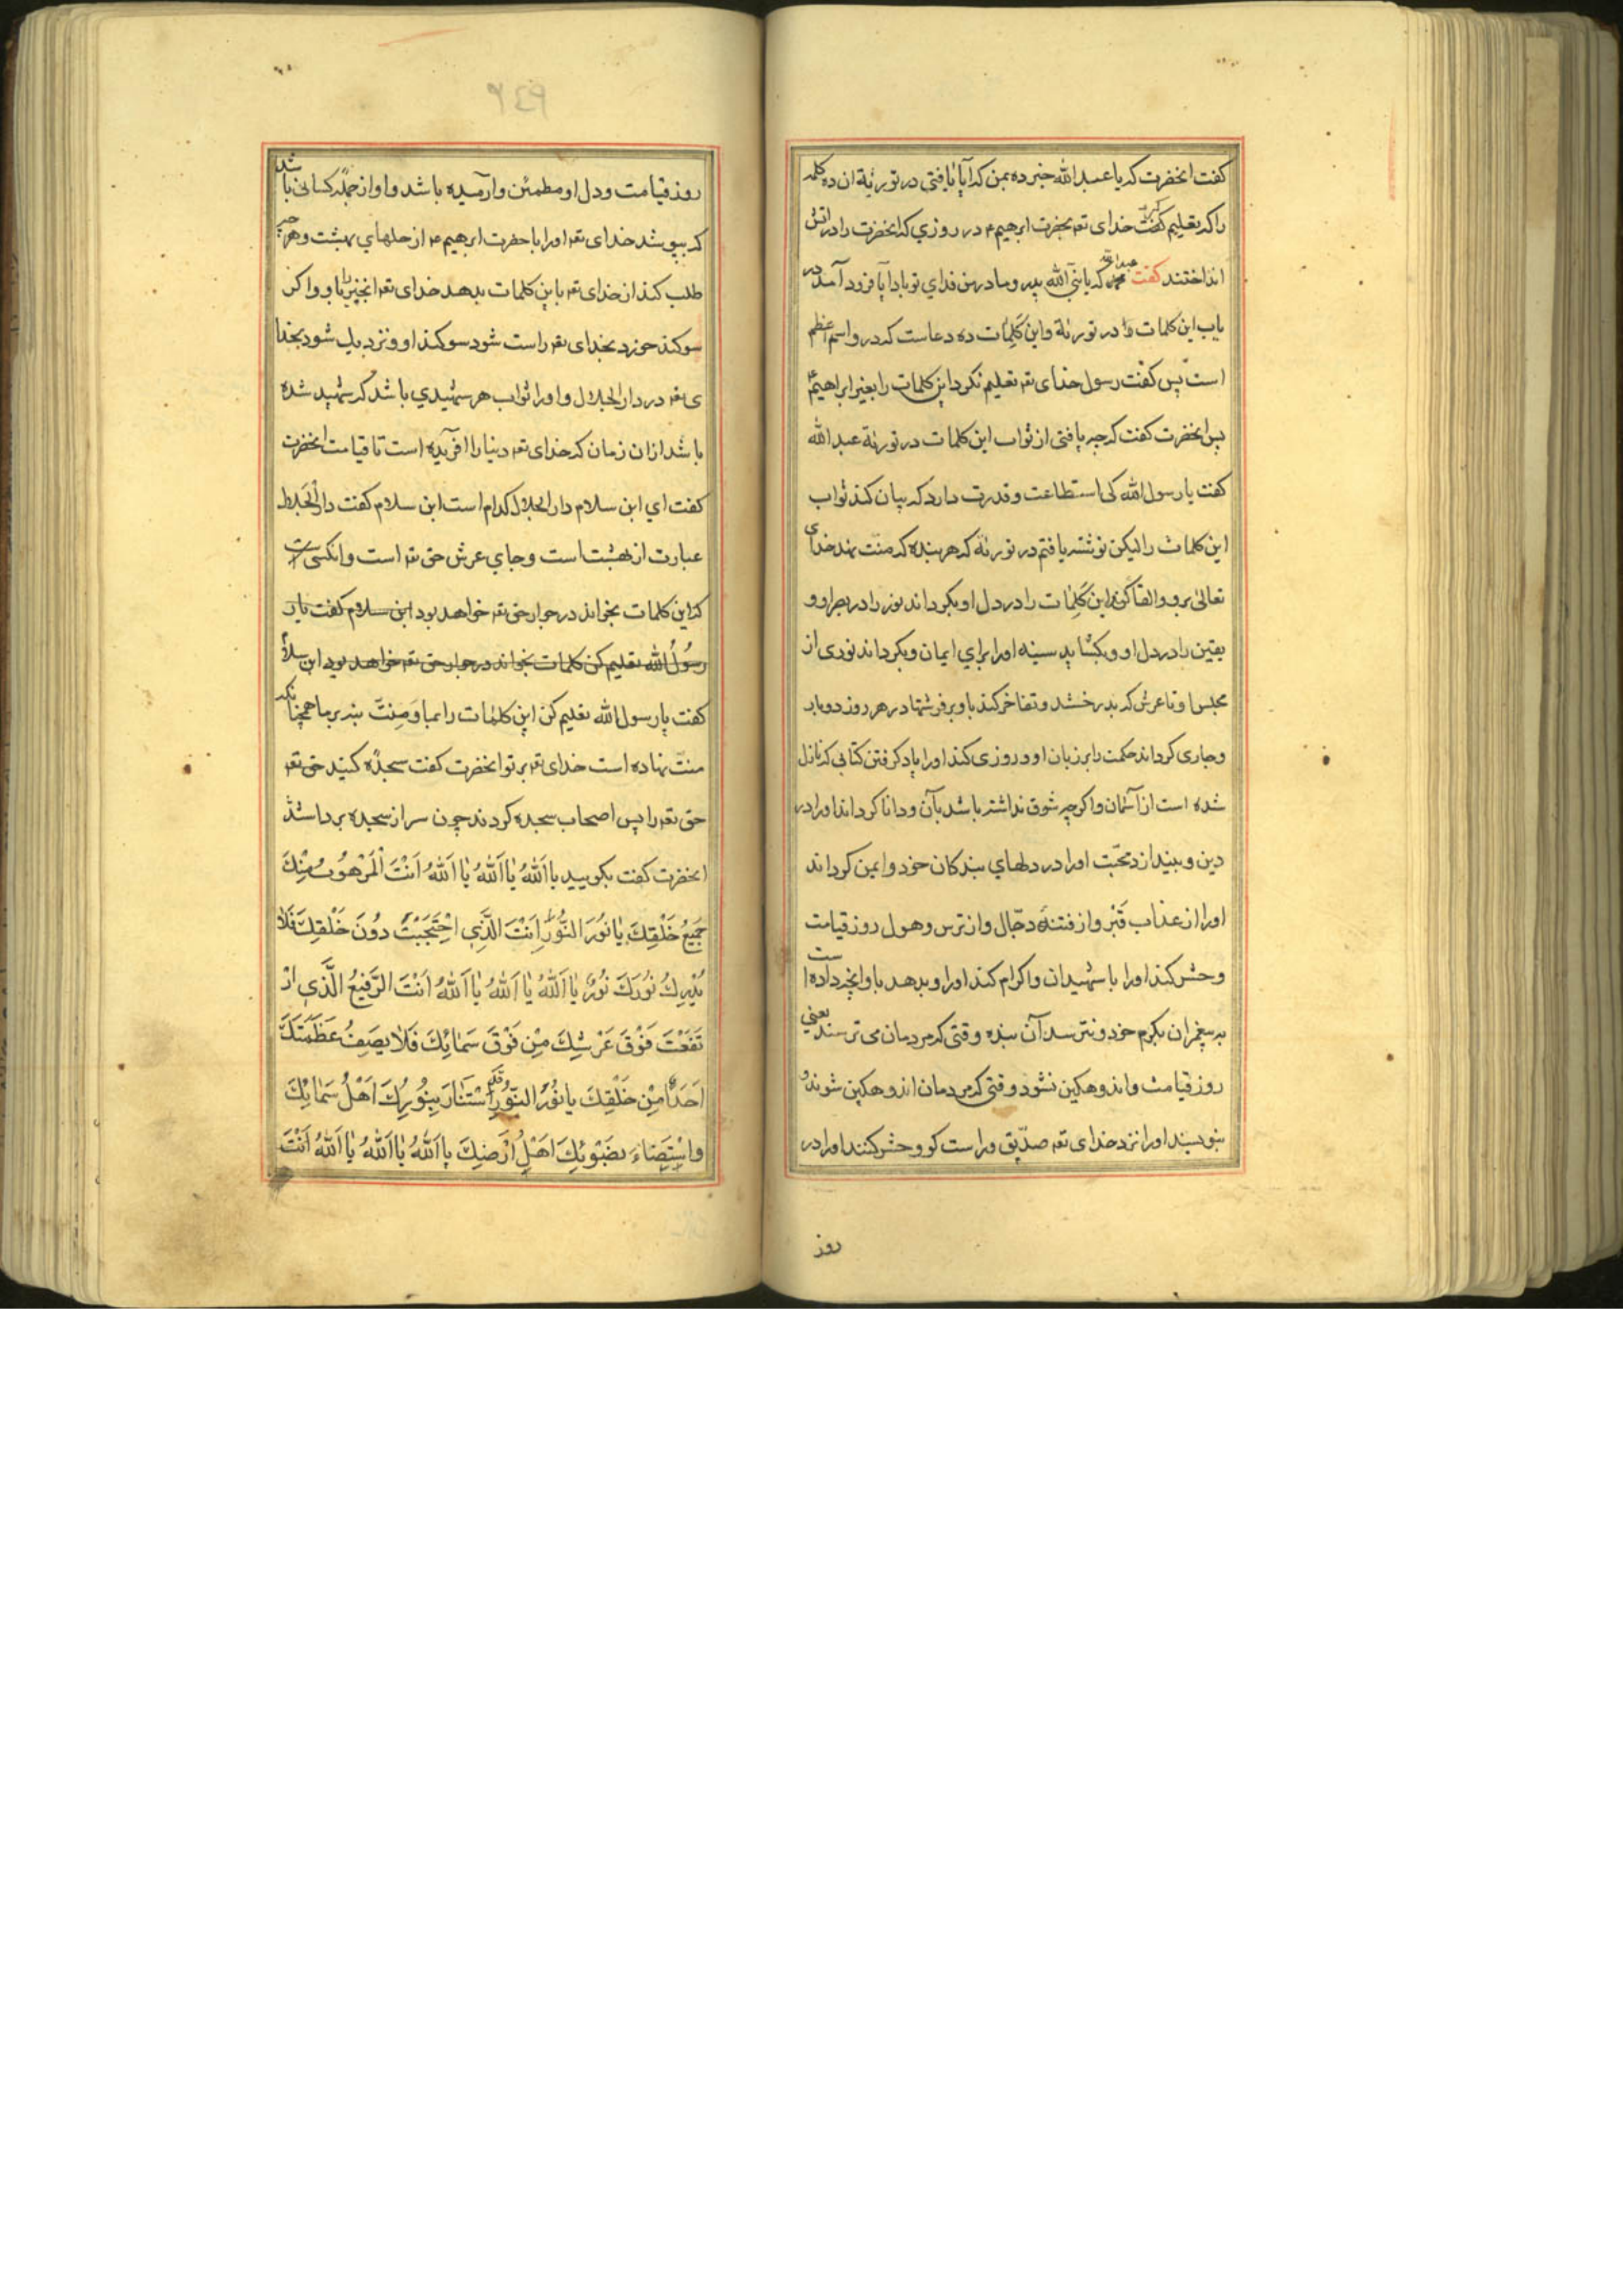 کفت انحضرت که یا عبدالله خبر ده بمن که آیا یافتی در توریة ان ده کلمه
را که تعلیم کفت خدای تعه بحضرت ابرهیم ۴ در روزي که انحضرت را در اتش
انداختند کفت عبدالله که یا نبی الله پدر و مادر من فداي تو باد آیا فرود آمد در
یاب این کلمات در توریة و این کلمات ده دعاست که در و اسم اعظم
است پس کفت رسول خدای تعه تعلیم نکرد این کلمات را بغیر ابراهیم
پس انحضرت کفت که چه یافتی از ثواب این کلمات در توریة عبدالله
کفت یا رسول الله کی استطاعت و قدرت دارد که بیان کند ثواب
این کلمات را لیکن نوشته یافتم در توریة که هر بنده که منت نهد خدای
تعالی برو و القا کند این کلمات را در دل او بکرداند نور را در بصر او و
یقین را در دل او و بکشاید سینه او را براي ایمان و بکرداند نوری از
مجلس او تا عرش که بدرخشد و تفاخر کند باو بر فرشتها در هر روز دو بار
و جاری کرداند حکمت را بر زبان او و روزی کند او را یاد کرفتن کتابی که نازل
شده است از آسمان و اکرچه شوق نداشته باشد بآن و دانا کرداند او را در
دین و بیندازد محبت او را در دلهاي بندکان خود و ایمن کرداند
او را از عذاب قبر و از فتنهٔ دجال و از ترس و هول روز قیامت
و حشر کند او را با شهیدان و اکرام کند او را و بدهد باو انچه داده است
به پیغمران بکرم خود و نترسد آن بنده وقتی که مردمان می ترسند یعني
روز قیامت و اندوهکین نشود وقتی که مردمان اندوهکین شوند و
بنویسند او را نزد خدای تعه صدیق و راست کو و حشر کنند او را در
روز
۲٤۹
روز قیامت و دل او مطمئن و آرامیده باشد و او از جمله کسانی باشد
که بپوشد خدای تعه او را با حضرت ابرهیم ۴ از حلهاي بهشت و هر چه
طلب کند از خدای تعه باین کلمات بدهد خدای تعه انچیز را باو و اکر
سوکند خورد بخدای تعه راست شود سوکند او و نزدیك شود بخدا
ی تعه در دار الجلال و او را ثواب هر شهیدي باشد که شهید شده
باشد از ان زمان که خدای تعه دنیا را افریده است تا قیامت انحضرت
کفت اي ابن سلام دار الجلال کدام است ابن سلام کفت دار الجلال
عبارت از بهشت است و جاي عرش حق تعه است و انکسی ست
که این کلمات بخواند در جوار حق تعه خواهد بود ابن سلام کفت یار
رسول الله تعلیم کن کلمات بخواند در جوار حق تعه خواهد بود ابن سلام
کفت یا رسول الله تعلیم کن این کلمات را بما و منت بنه بر ما همچنانکه
منت نهاده است خدای تعه بر تو انحضرت کفت سجده کنید حق تعه
حق تعه را پس اصحاب سجده کردند چون سر از سجده برداشتند
انحضرت کفت بکویید یا اَللهُ یا اَللهُ یا اَللهُ اَنْتَ الْمَرْهُوبُ مِنْكَ
جَمِیعُ خَلْقِكَ یا نُورَ النُّورِ اَنْتَ الَّذِي احْتَجَبْتَ دُونَ خَلْقِكَ فَلا
یُدْرِكُ نُورَكَ نُورٌ یا اَللهُ یا اَللهُ یا اَللهُ اَنْتَ الرَّفِیعُ الَّذِي ارْ
تَفَعْتَ فَوْقَ عَرْشِكَ مِنْ فَوْقِ سَمائِكَ فَلا یَصِفُ عَظَمَتَكَ
اَحَدٌ مِنْ خَلْقِكَ یا نُورَ النُّورِ قَدِ اسْتَنارَ بِنُورِكَ اَهْلُ سَمائِكَ
وَاسْتَضاءَ بِضَوْئِكَ اَهْلُ اَرْضِكَ یا اَللهُ یا اَللهُ یا اَللهُ اَنْتَ